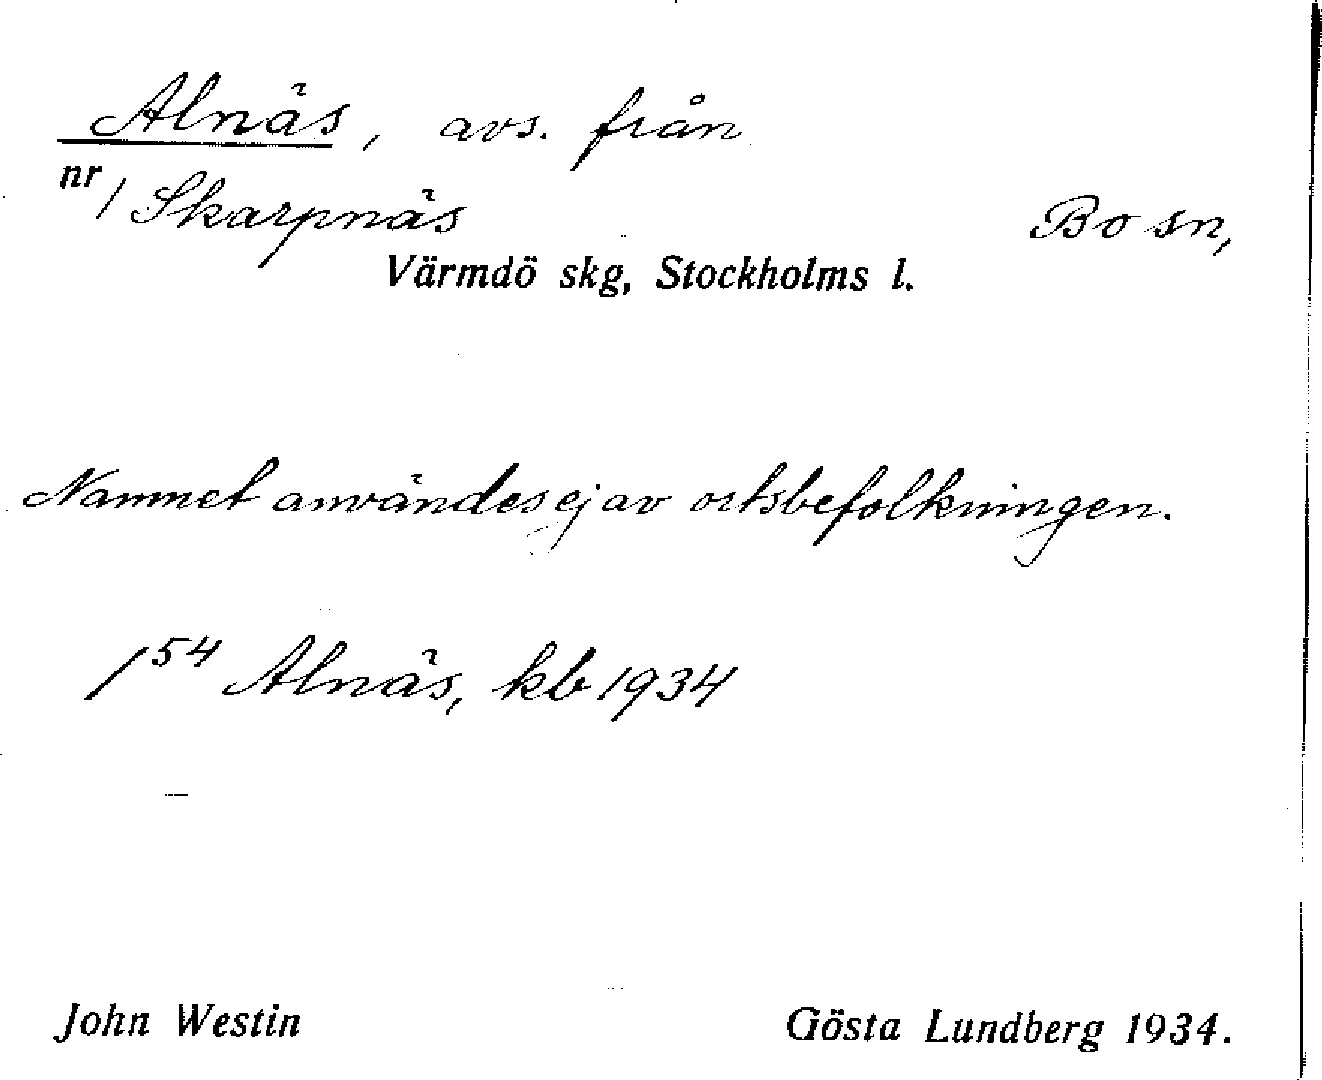 Alnäs, avs. från
nr 1 Skarpnäs Bo sn,
Värmdö skg, Stockholms l.
Namnet användes ej av ortsbefolkningen.
1⁵⁴ Alnäs, kb 1934
John Westin Gösta Lundberg 1934.